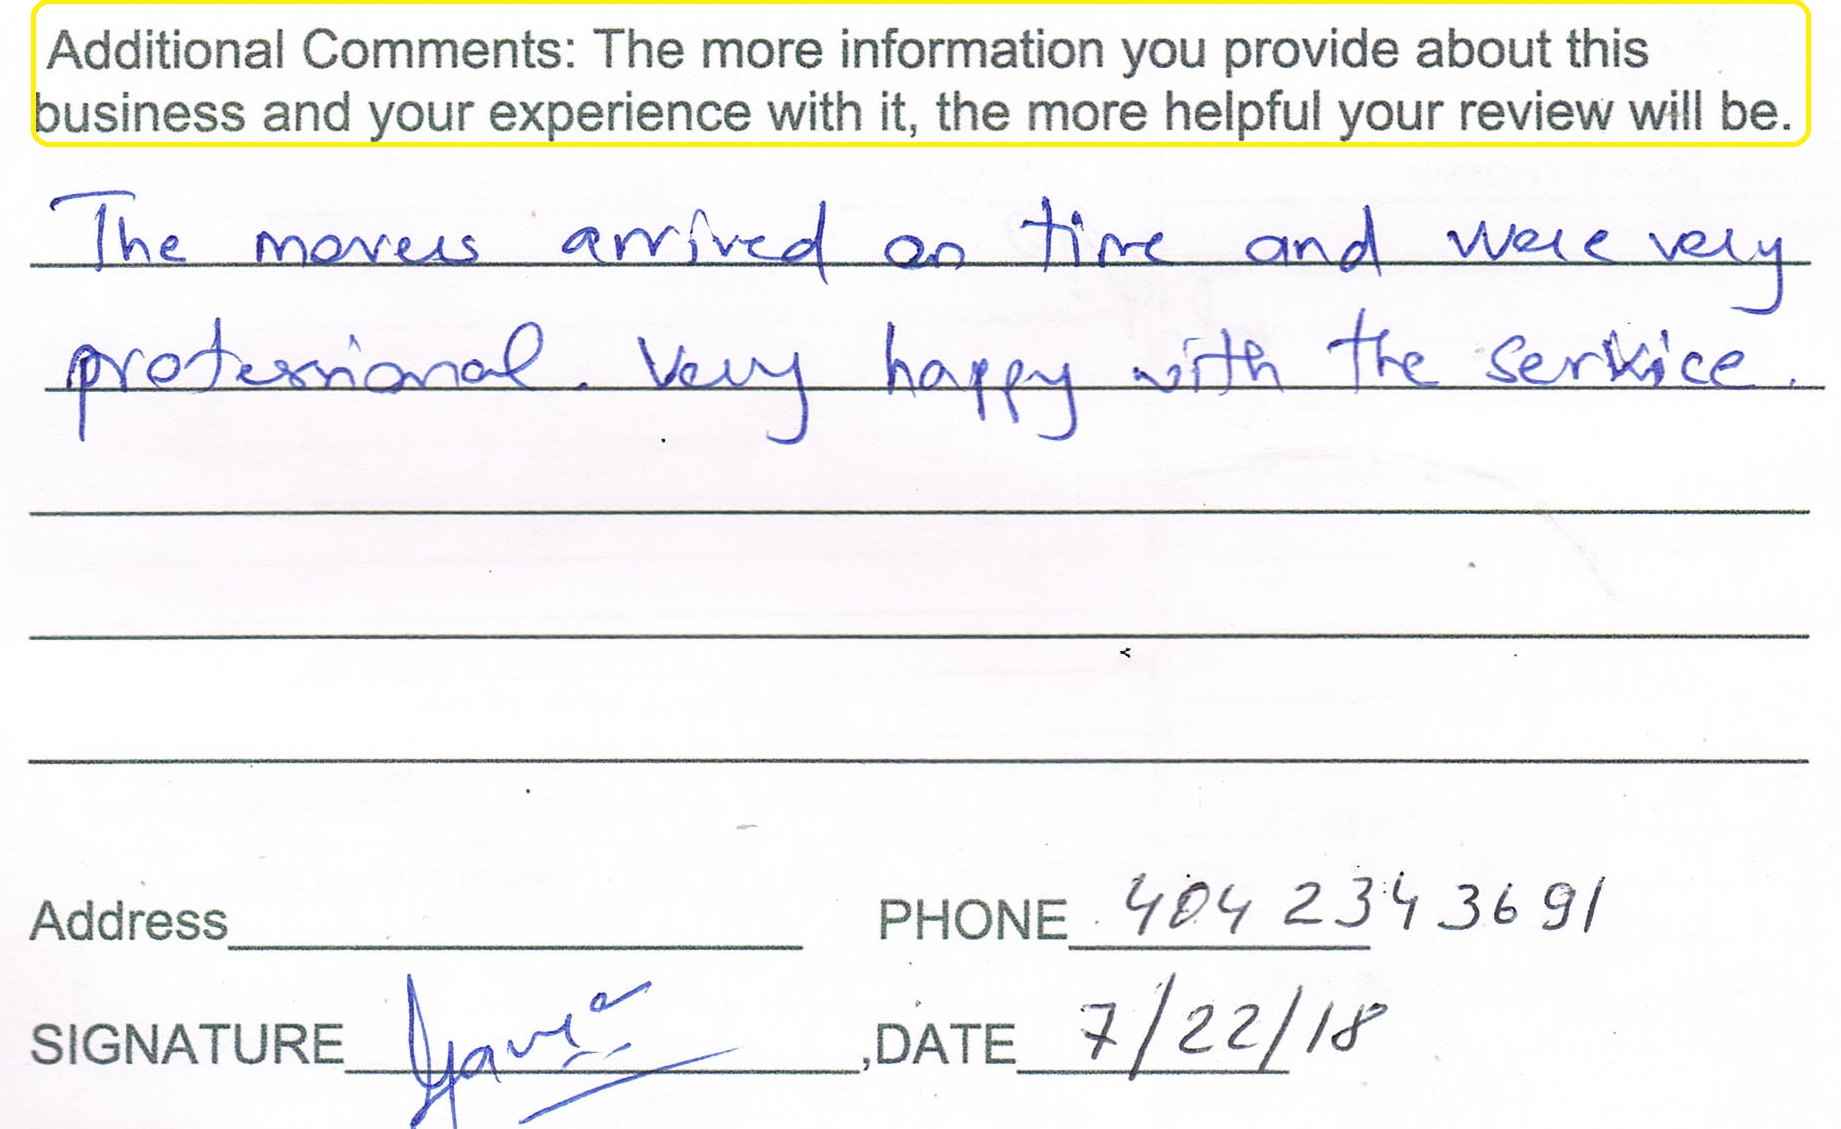 Additional Comments: The more information you provide about this
business and your experience with it, the more helpful your review will be.
The movers arrived on time and were very
professional. Very happy with the service.
Address
PHONE 404 234 3691
SIGNATURE
,DATE 7/22/18